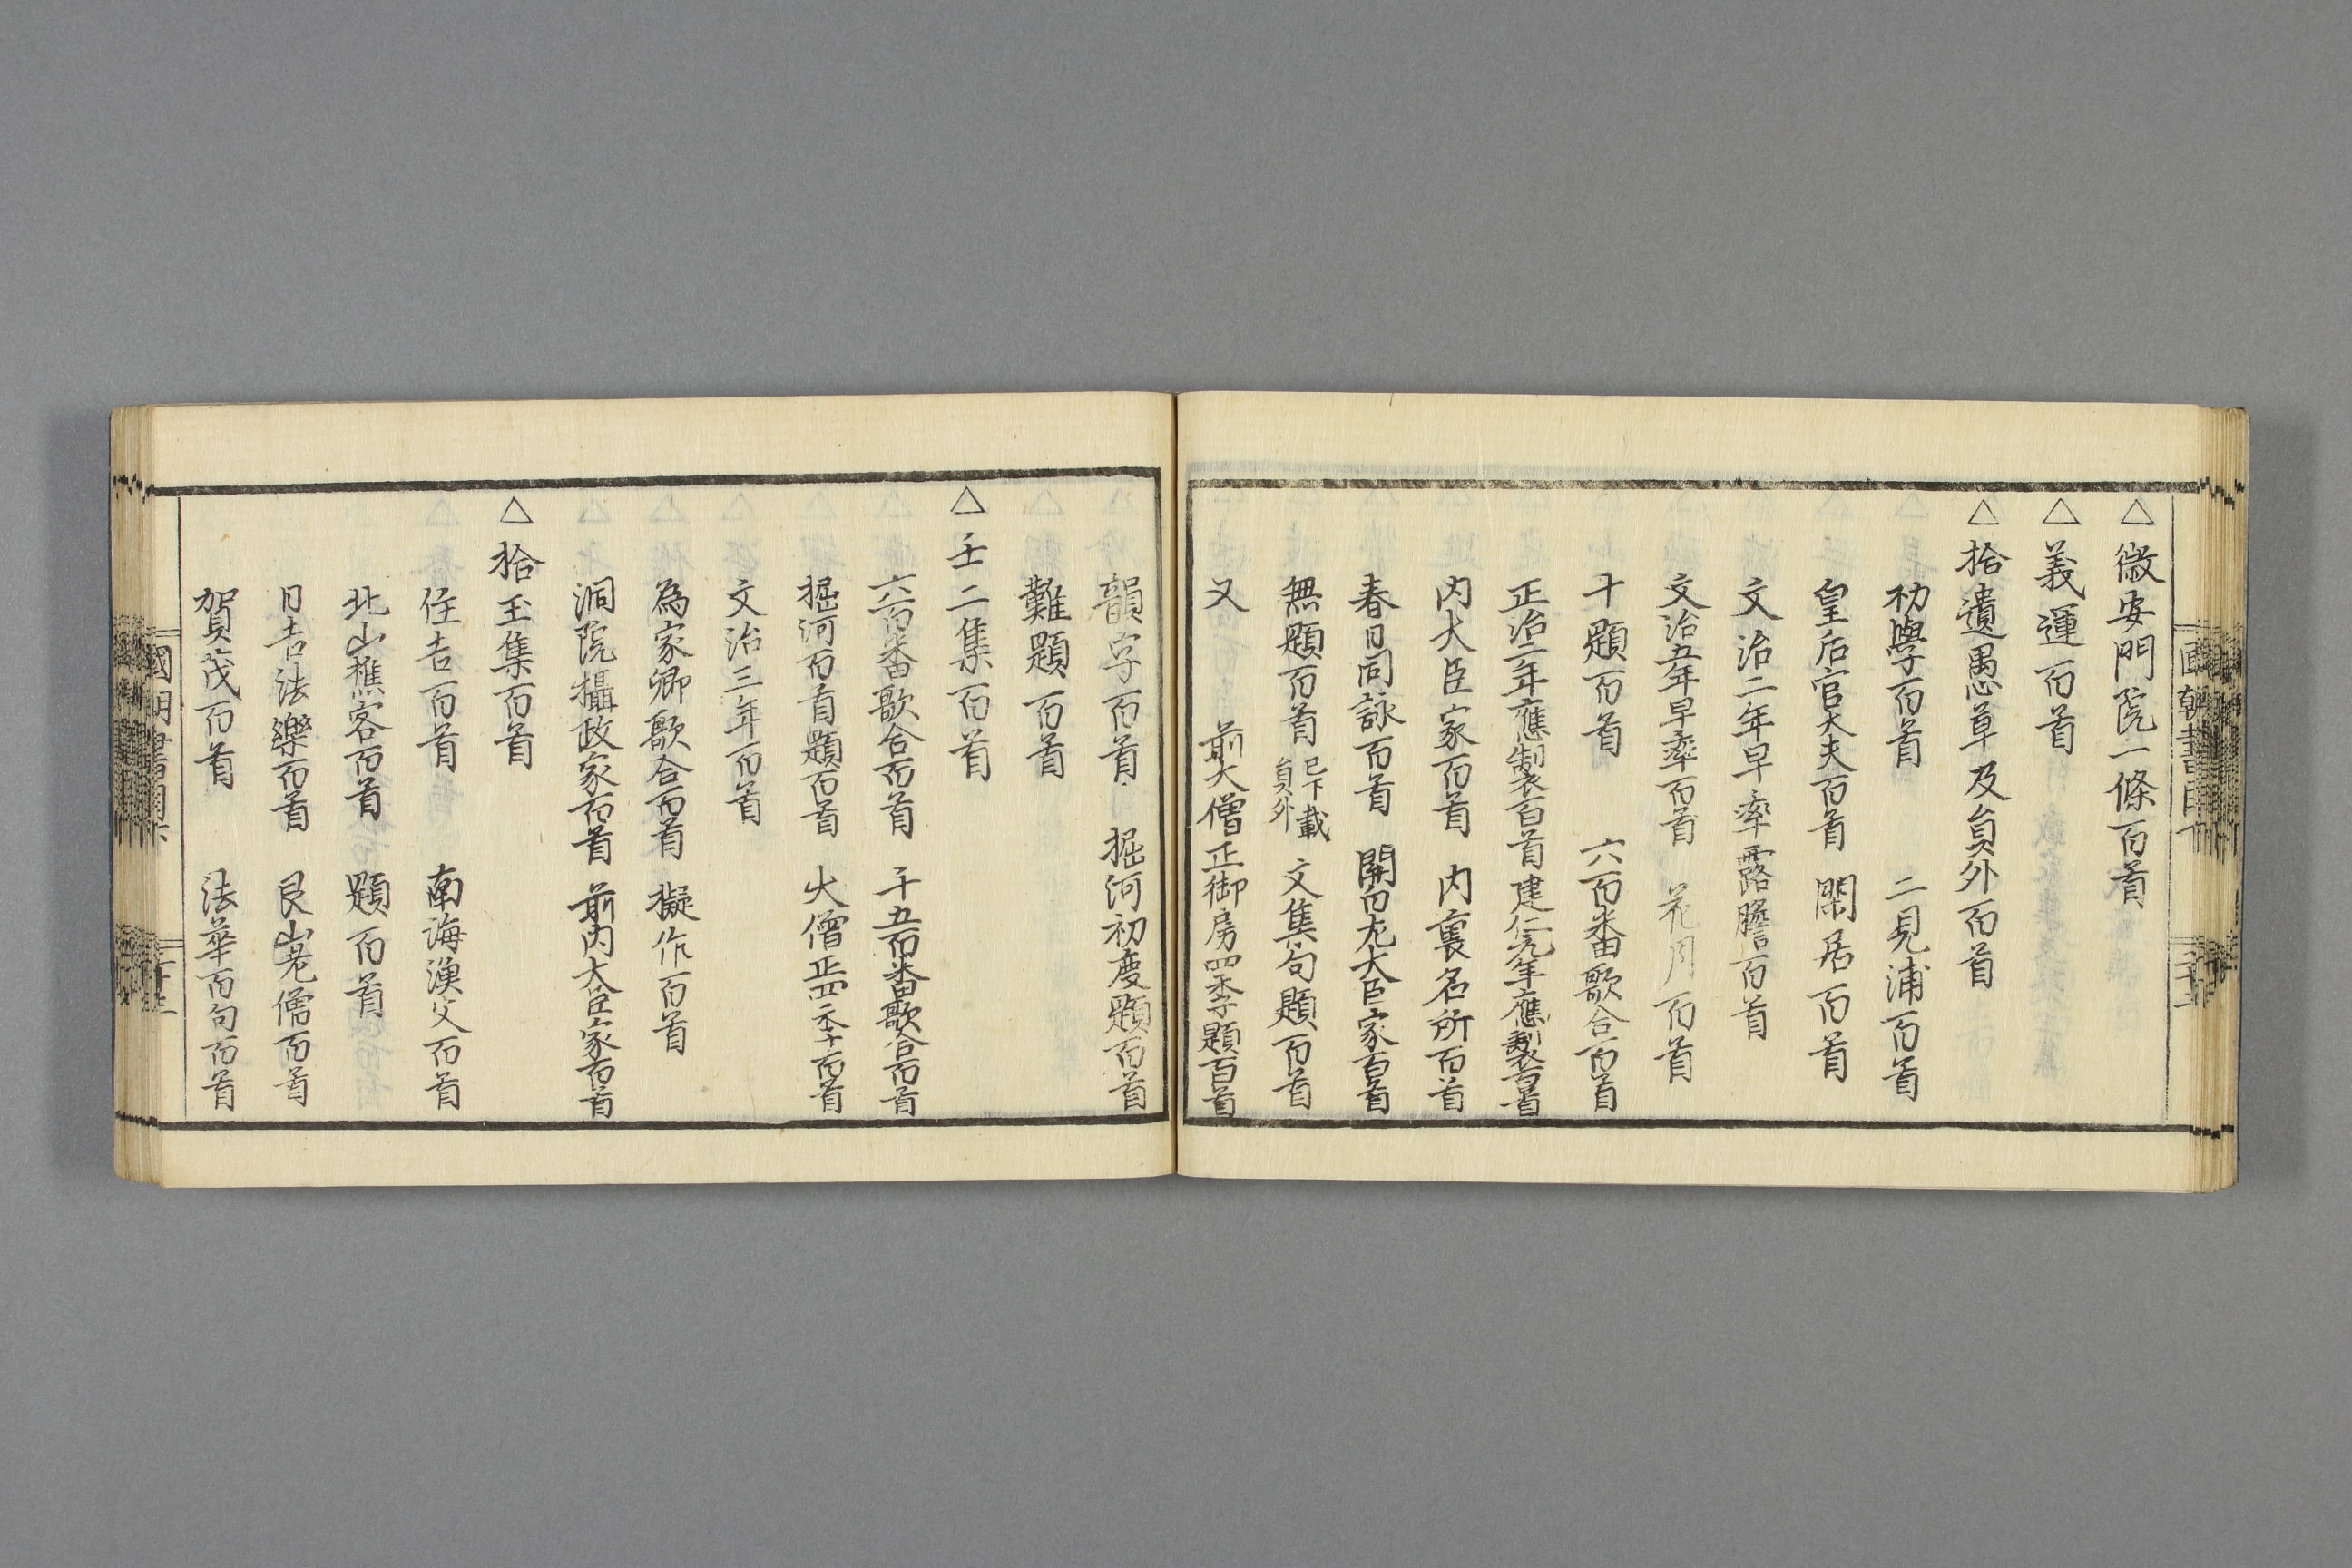 △徽安門院一條百首
△義運百首
△拾遺愚草及員外百首
初學百首　二見浦百首
皇后宮大夫百首　閑居百首
文治二年早率露膽百首
文治五年早率百首　花月百首
十題百首　六百番歌合百首
正治二年應製百首　建仁元年應製百首
内大臣家百首　内裏名所百首
春日同詠百首　關白左大臣家百首
無題百首　已下載員外　文集句題百首
又　前大僧正御房四季題百首
韻字百首　堀河初度題百首
難題百首
△壬二集百首
六百番歌合百首　千五百番歌合百首
堀河百首題百首　大僧正四季百首
文治三年百首
為家卿歌合百首　擬作百首
洞院攝政家百首　前内大臣家百首
△拾玉集百首
住吉百首　南海漁父百首
北山樵客百首　題百首
日吉法樂百首　艮山老僧百首
賀茂百首　法華百句百首